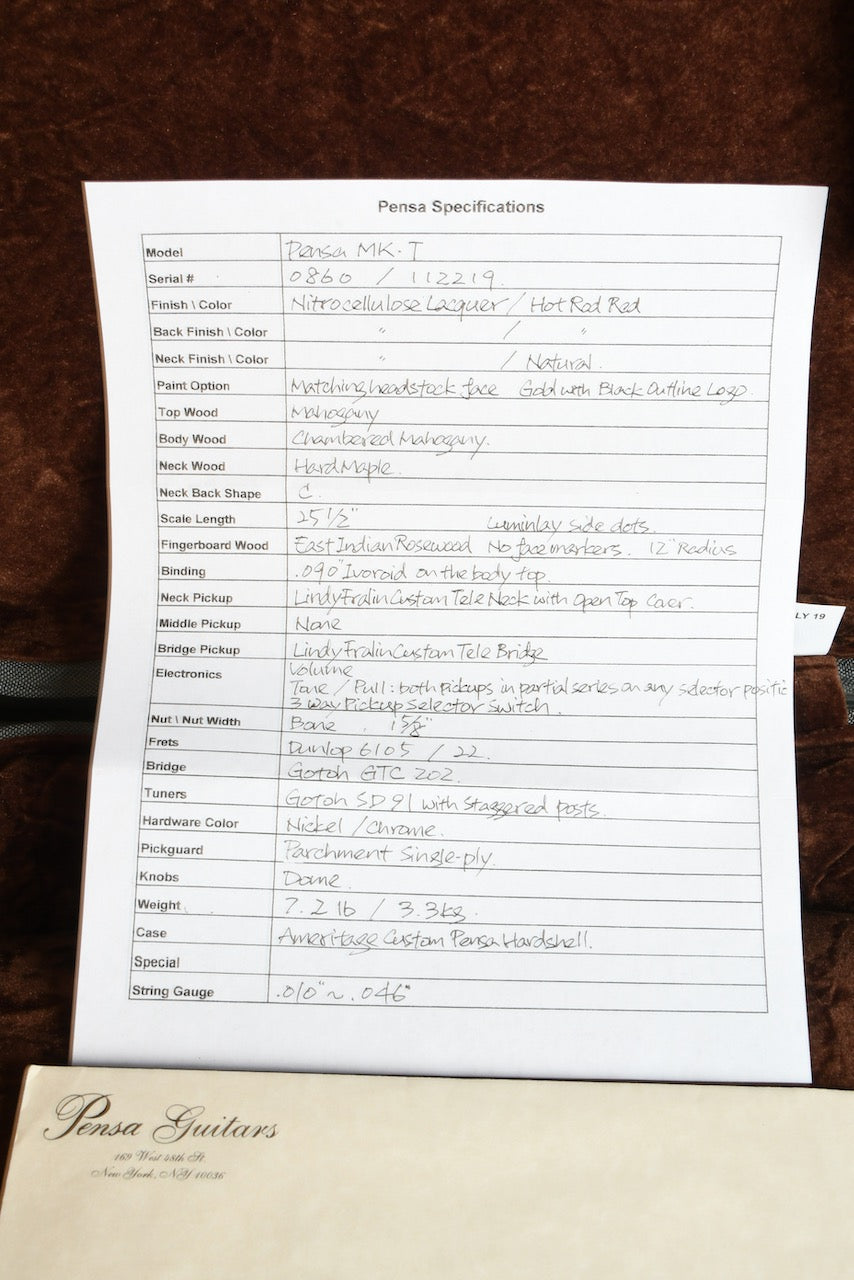 Pensa Specifications
Model Pensa MK-T
Serial # 0860 / 112219.
Finish \ Color Nitrocellulose Lacquer / Hot Rod Red
Back Finish \ Color " / "
Neck Finish \ Color " / Natural.
Paint Option Matching headstock face Gold with Black Outline Logo.
Top Wood Mahogany
Body Wood Chambered Mahogany.
Neck Wood Hard Maple.
Neck Back Shape C.
Scale Length 25 1/2" Luminlay side dots.
Fingerboard Wood East Indian Rosewood No face markers. 12" Radius
Binding .090" Ivoroid on the body top.
Neck Pickup Lindy Fralin Custom Tele Neck with Open Top Cover.
Middle Pickup None
Bridge Pickup Lindy Fralin Custom Tele Bridge
Electronics Volume
Tone / Pull: both pickups in partial series on any selector positic
3 way Pickup Selector Switch.
Nut \ Nut Width Bone . 1 5/8"
Frets Dunlop 6105 / 22.
Bridge Gotoh GTC 202.
Tuners Gotoh SD91 with Staggered posts.
Hardware Color Nickel / Chrome.
Pickguard Parchment Single-ply.
Knobs Dome.
Weight 7.2 lb / 3.3kg.
Case Ameritage Custom Pensa Hardshell.
Special
String Gauge .010" ~ .046"
LY 19
Pensa Guitars
169 West 48th St.
New York, NY 10036